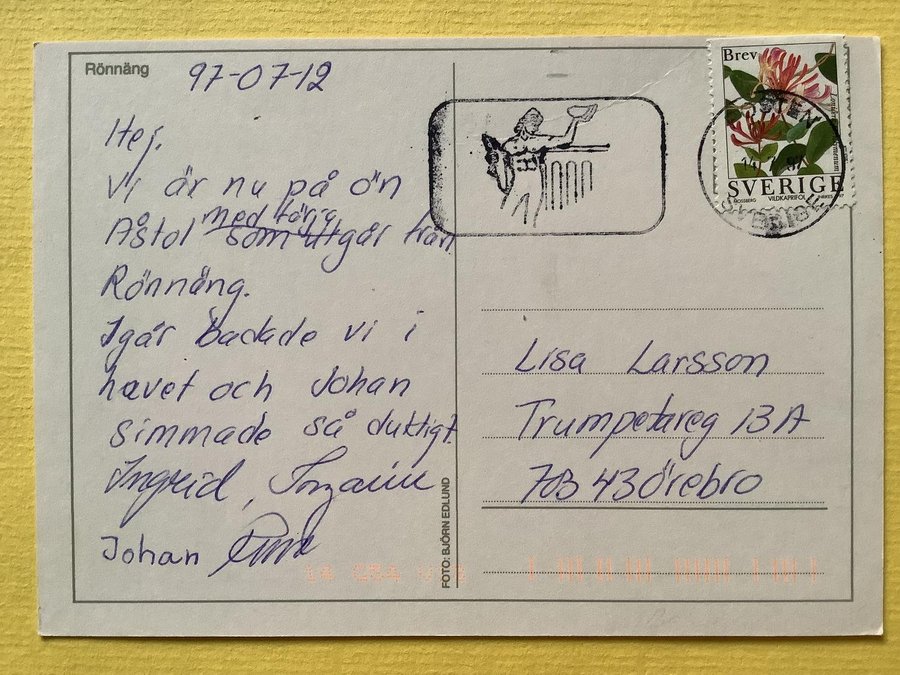 Rönnäng
97-07-12
Hej.
Vi är nu på ön
Åstol med färja som utgår från
Rönnäng.
Igår badade vi i
havet och Johan
simmade så duktigt.
Ingrid,
Johan
FOTO: BJÖRN EDLUND
Brev
SVERIGE
VILDKAPRIFOL
Lisa Larsson
Trumpetareg 13 A
703 43 Örebro